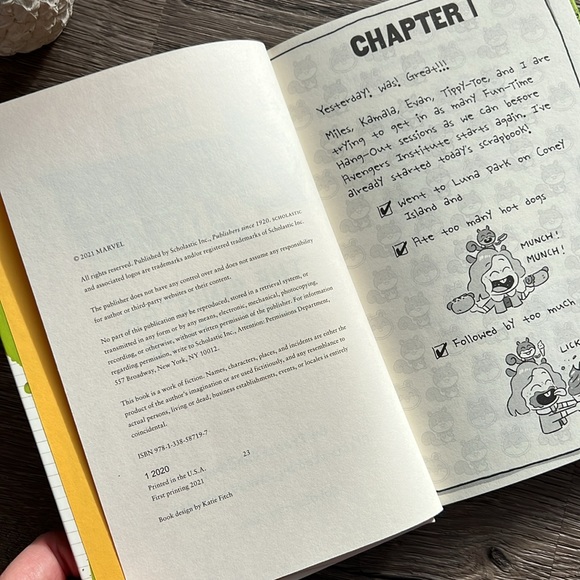 © 2021 MARVEL
All rights reserved. Published by Scholastic Inc., Publishers since 1920. SCHOLASTIC
and associated logos are trademarks and/or registered trademarks of Scholastic Inc.
The publisher does not have any control over and does not assume any responsibility
for author or third-party websites or their content.
No part of this publication may be reproduced, stored in a retrieval system, or
transmitted in any form or by any means, electronic, mechanical, photocopying,
recording, or otherwise, without written permission of the publisher. For information
regarding permission, write to Scholastic Inc., Attention: Permissions Department,
557 Broadway, New York, NY 10012.
This book is a work of fiction. Names, characters, places, and incidents are either the
product of the author's imagination or are used fictitiously, and any resemblance to
actual persons, living or dead, business establishments, events, or locales is entirely
coincidental.
ISBN 978-1-338-58719-7
1 2020
Printed in the U.S.A. 23
First printing 2021
Book design by Katie Fitch
CHAPTER 1
Yesterday! Was! Great!!!
Miles, Kamala, Evan, Tippy-Toe, and I are
trying to get in as many Fun-Time
Hang-Out sessions as we can before
Avengers Institute starts again. I've
already started today's scrapbook!
Went to Luna Park on Coney
Island and
Ate too many hot dogs
MUNCH!
MUNCH!
Followed by too much
LICK